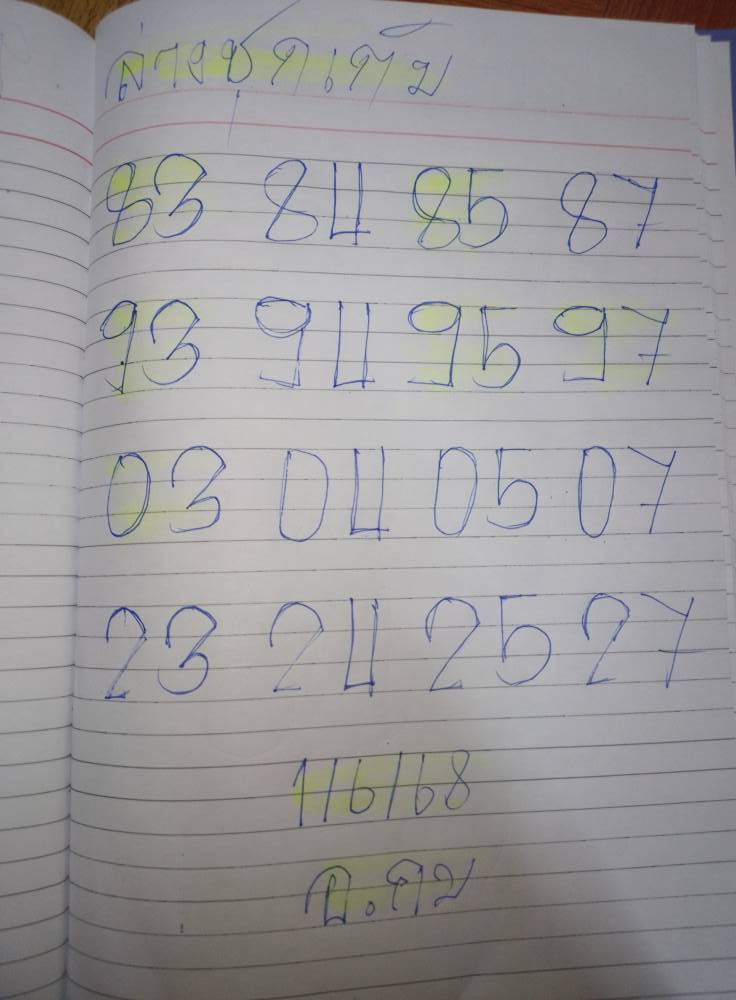 ล่างชุดเต็ม
83 84 85 87
93 94 95 97
03 04 05 07
23 24 25 27
1/6/68